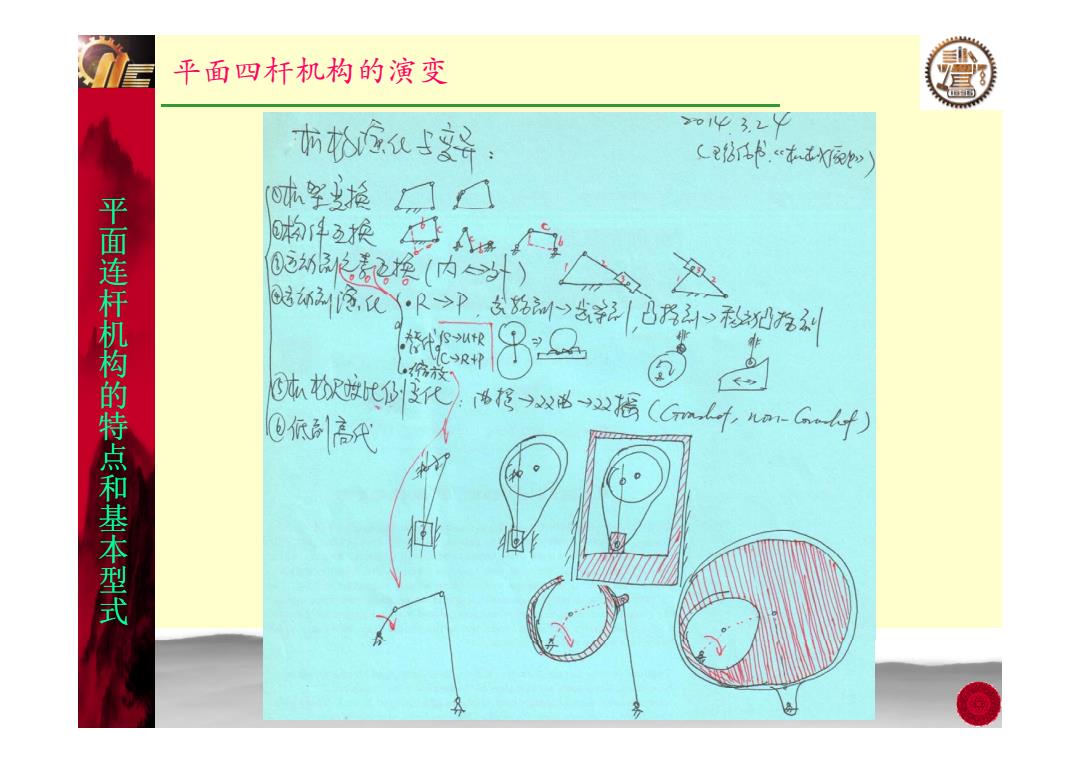 平面四杆机构的演变
1896
平面连杆机构的特点和基本型式
2014.3.24
机构演化与变异：
①机架变换
②构件互换
b c a
b
c b
③运动副元素互换（内↔外）
1 2 3
1 2 3
④运动副演化 •R→P，齿轮副→齿条副，凸轮副→移动凸轮副
•替代 S→U+R
C→R+P
•缩放
⑤机构尺度比例变化：曲摇→双曲→双摇（Grashof, non-Grashof）
⑥低副高代